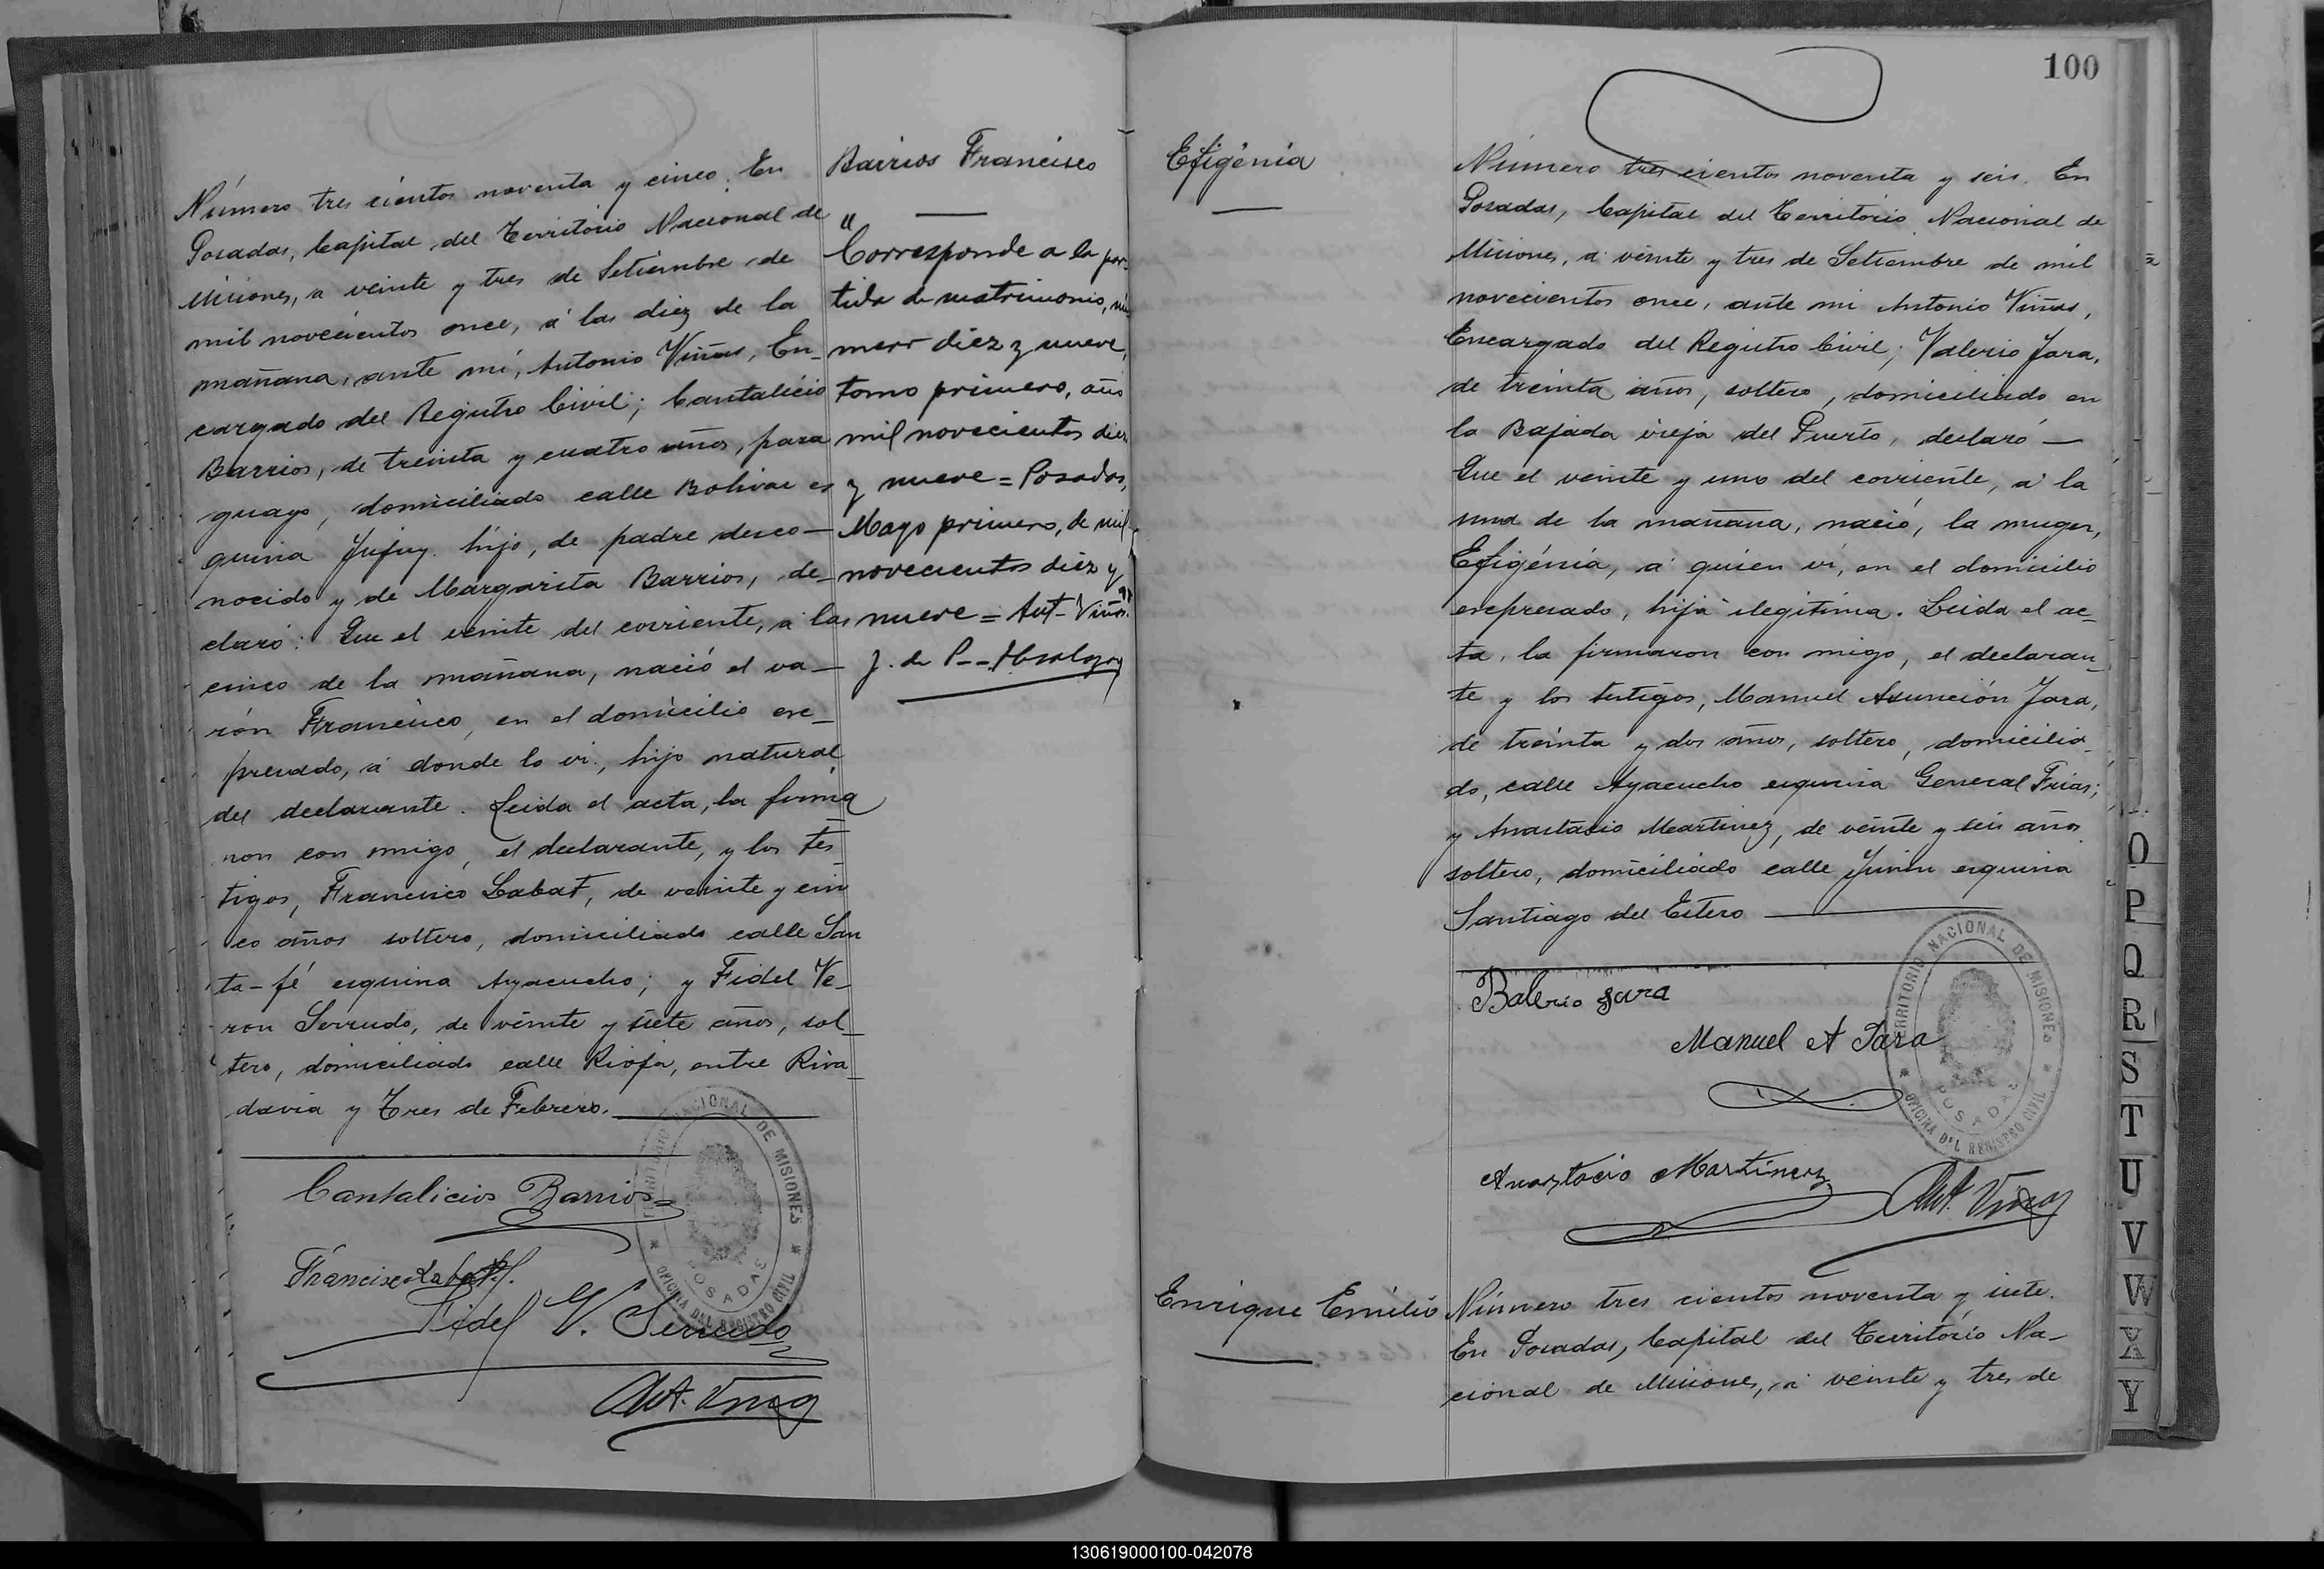 Número tres cientos noventa y cinco. En
Posadas, Capital del Territorio Nacional de
Misiones, a veinte y tres de Setiembre de
mil novecientos once, á las diez de la
mañana, ante mí, Antonio Viñas, En-
cargado del Registro Civil; Cantalicio
Barrios, de treinta y cuatro años, para
guayo, domiciliado calle Bolivar es
quina Jujuy. hijo, de padre desco-
nocido y de Margarita Barrios, de-
claró: Que el veinte del corriente, a las
cinco de la mañana, nació el va-
rón Francisco, en el domicilio ex-
presado, á donde lo vi, hijo natural
del declarante. Leida el acta, la firma
ron con migo, el declarante, y los tes-
tigos, Francisco Labat, de veinte y cin
co años soltero, domiciliado calle San
ta-fé esquina Ayacucho; y Fidel Ve-
ron Serrudo, de veinte y siete años, sol-
tero, domiciliado calle Rioja, entre Riva-
davia y Tres de Febrero.
Cantalicios Barrios
Francisco Labat
Fidel V. Serrudo
Ant. Viñas
TERRITORIO NACIONAL DE MISIONES
POSADAS
OFICINA DEL REGISTRO CIVIL
Barrios Francisco
"
Corresponde a la par-
tida de matrimonio, nú
mero diez y nueve,
tomo primero, año
mil novecientos diez
y nueve = Posadas,
Mayo primero, de mil
novecientos diez y
nueve = Ant- Viñas.
J. de P.
100
Efigénia
Número tres cientos noventa y seis. En
Posadas, Capital del Territorio Nacional de
Misiones, á veinte y tres de Setiembre de mil
novecientos once, ante mi Antonio Viñas,
Encargado del Registro Civil; Valerio Jara,
de treinta años, soltero, domiciliado en
la Bajada vieja del Puerto, declaró —
Que el veinte y uno del corriente, á la
una de la mañana, nació, la muger,
Efigénia, á quien vi, en el domicilio
expresado, hija ilegítima. Leida el ac-
ta, la firmaron con migo, el declaran-
te y los testigos, Manuel Asunción Jara,
de treinta y dos años, soltero, domicilia-
do, calle Ayacucho esquina General Frias;
y Anastasio Martinez, de veinte y seis años
soltero, domiciliado calle Junin esquina
Santiago del Estero
Balerio Jara
Manuel A Jara
Anastacio Martinez
Ant. Viñas
TERRITORIO NACIONAL DE MISIONES
POSADAS
OFICINA DEL REGISTRO CIVIL
Enrique Emilio
Número tres cientos noventa y siete.
En Posadas, Capital del Territorio Na-
cional de Misiones, á veinte y tres de
O
P
Q
R
S
T
U
V
W
X
Y
130619000100-042078